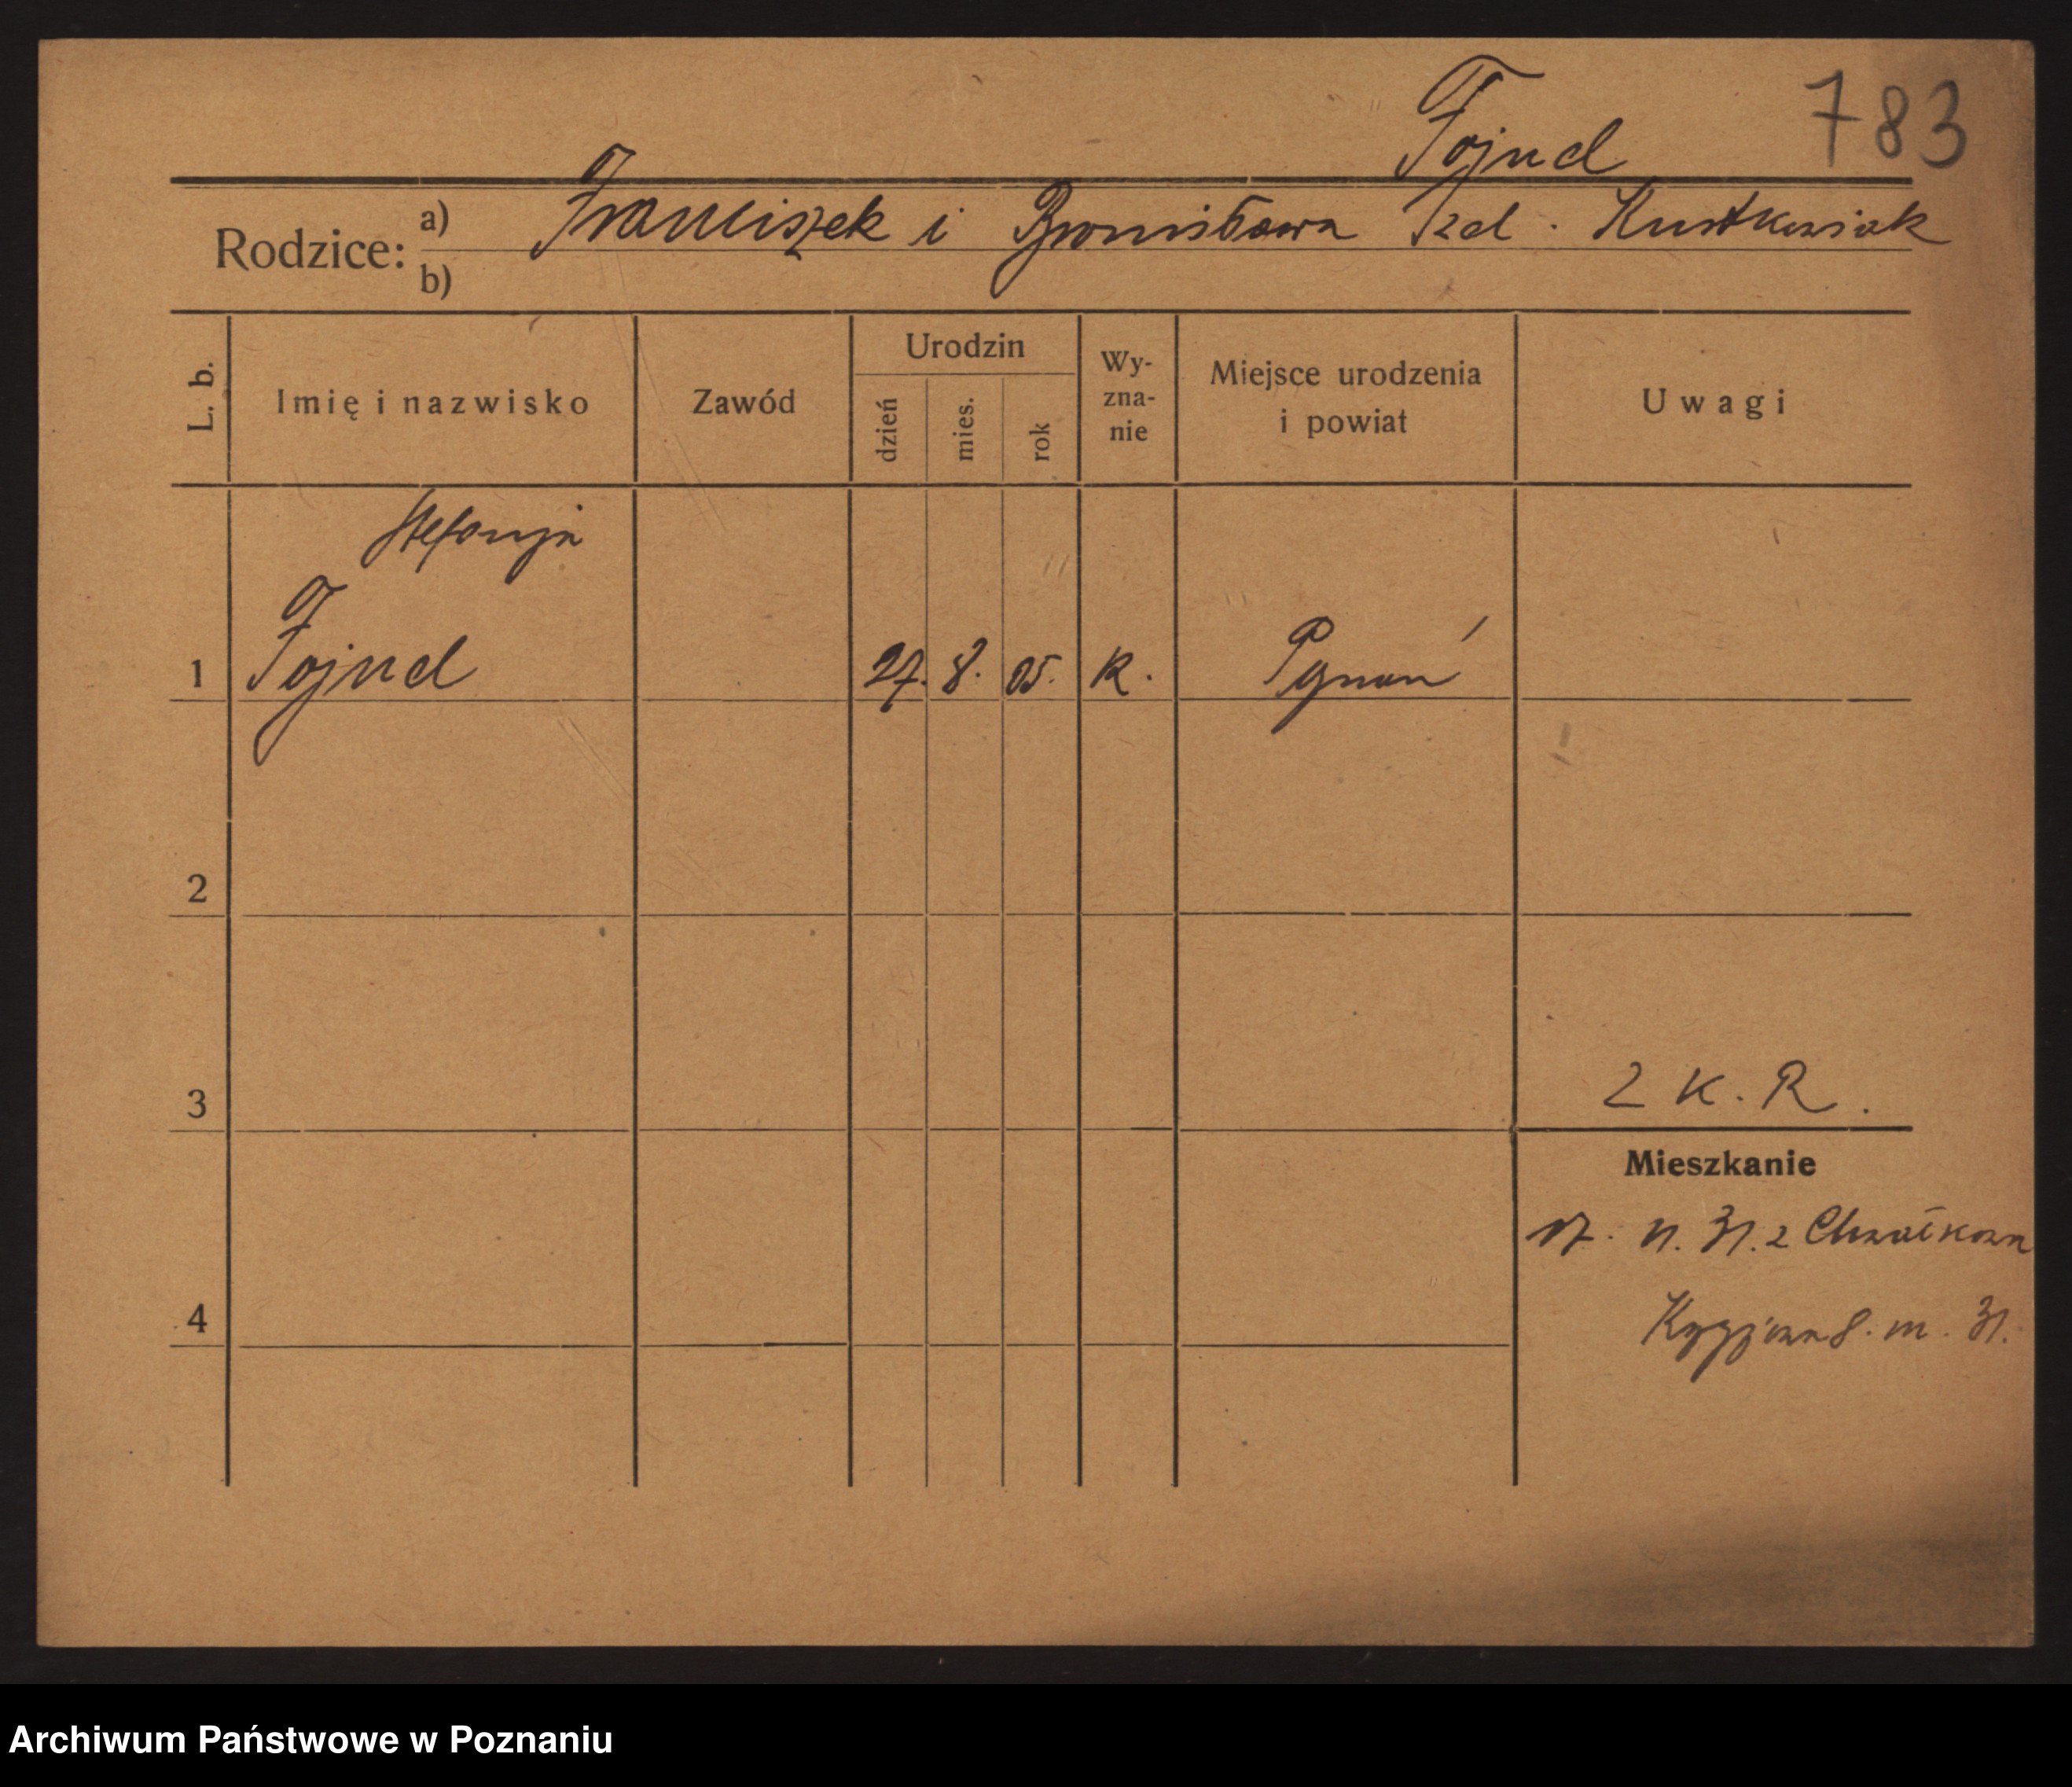 783
Fojud
Rodzice: a) Franciszek i Bronisława zd.
b)
L. b. Imię i nazwisko Zawód Urodzin dzień mies. rok Wy-zna-nie Miejsce urodzenia i powiat Uwagi
Stefanja
1 Fojud 27. 8. 05. K. Poznań
2
3 2 K. R.
Mieszkanie
17. 11. 31. z
4 8. m. 31.
Archiwum Państwowe w Poznaniu